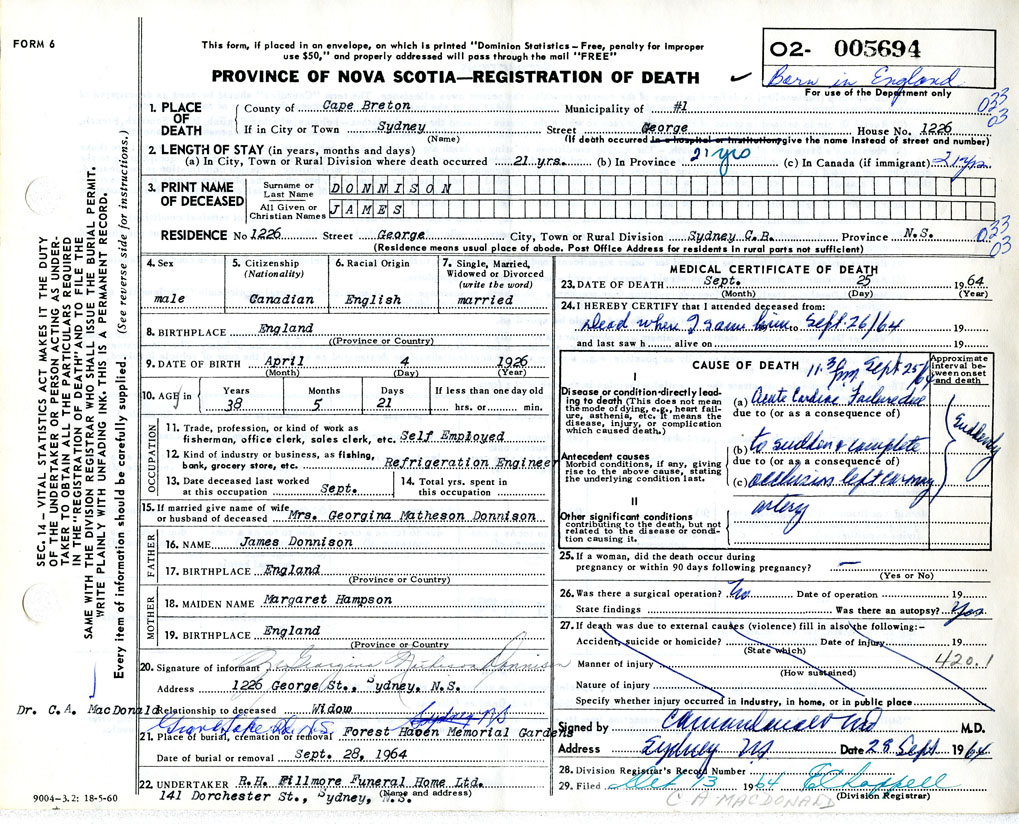 FORM 6
This form, if placed in an envelope, on which is printed "Dominion Statistics – Free, penalty for improper
use $50," and properly addressed will pass through the mail "FREE"
PROVINCE OF NOVA SCOTIA—REGISTRATION OF DEATH ✓
02- 005694
Born in England
For use of the Department only
033
03
SEC. 14 – VITAL STATISTICS ACT MAKES IT THE DUTY
OF THE UNDERTAKER OR PERSON ACTING AS UNDER-
TAKER TO OBTAIN ALL THE PARTICULARS REQUIRED
IN THE "REGISTRATION OF DEATH" AND TO FILE THE
SAME WITH THE DIVISION REGISTRAR WHO SHALL ISSUE THE BURIAL PERMIT.
WRITE PLAINLY WITH UNFADING INK. THIS IS A PERMANENT RECORD.
Every item of information should be carefully supplied. (See reverse side for instructions.)
1. PLACE OF DEATH
County of Cape Breton Municipality of #1
If in City or Town Sydney Street George House No. 1226
(Name) (If death occurred in a hospital or institution, give the name instead of street and number)
2. LENGTH OF STAY (in years, months and days)
(a) In City, Town or Rural Division where death occurred 21 yrs. (b) In Province 21 yrs (c) In Canada (if immigrant) 21 yrs.
3. PRINT NAME OF DECEASED
Surname or Last Name DONNISON
All Given or Christian Names JAMES
RESIDENCE No 1226 Street George City, Town or Rural Division Sydney C.B. Province N.S.
033
03
(Residence means usual place of abode. Post Office Address for residents in rural parts not sufficient)
4. Sex
male
5. Citizenship
(Nationality)
Canadian
6. Racial Origin
English
7. Single, Married,
Widowed or Divorced
(write the word)
married
8. BIRTHPLACE England
((Province or Country)
9. DATE OF BIRTH April 4 1926
(Month) (Day) (Year)
10. AGE in
Years Months Days If less than one day old
38 5 21 hrs. or min.
OCCUPATION
11. Trade, profession, or kind of work as
fisherman, office clerk, sales clerk, etc. Self Employed
12. Kind of industry or business, as fishing,
bank, grocery store, etc. Refrigeration Engineer
13. Date deceased last worked
at this occupation Sept.
14. Total yrs. spent in
this occupation
15. If married give name of wife
or husband of deceased Mrs. Georgina Matheson Donnison
FATHER
16. NAME James Donnison
17. BIRTHPLACE England
(Province or Country)
MOTHER
18. MAIDEN NAME Margaret Hampson
19. BIRTHPLACE England
(Province or Country)
20. Signature of informant Georgina Matheson Donnison
Address 1226 George St., Sydney, N.S.
Dr. C.A. MacDonald
Relationship to deceased Widow
Sydney NS
21. Place of burial, cremation or removal Forest Haven Memorial Gardens
Date of burial or removal Sept. 28, 1964
22. UNDERTAKER R.H. Fillmore Funeral Home Ltd.
141 Dorchester St., Sydney, N.S.
(Name and address)
9004-3.2: 18-5-60
MEDICAL CERTIFICATE OF DEATH
23. DATE OF DEATH Sept. 25 1964
(Month) (Day) (Year)
24. I HEREBY CERTIFY that I attended deceased from:
Dead when I saw him to Sept. 26/64 19
and last saw h alive on 19
CAUSE OF DEATH
11:30 pm Sept 25/64
Approximate interval between onset and death
I
Disease or condition directly lead-
ing to death (This does not mean
the mode of dying, e.g., heart fail-
ure, asthenia, etc. It means the
disease, injury, or complication
which caused death.)
(a) Acute Cardiac Failure due
due to (or as a consequence of)
Antecedent causes
Morbid conditions, if any, giving
rise to the above cause, stating
the underlying condition last.
(b) to sudden & complete
due to (or as a consequence of)
(c) occlusion left coronary
artery
Suddenly
II
Other significant conditions
contributing to the death, but not
related to the disease or condi-
tion causing it.
25. If a woman, did the death occur during
pregnancy or within 90 days following pregnancy? —
(Yes or No)
26. Was there a surgical operation? No Date of operation 19
State findings Was there an autopsy? Yes
27. If death was due to external causes (violence) fill in also the following:–
Accident, suicide or homicide? Date of injury 19
(State which)
420.1
Manner of injury
(How sustained)
Nature of injury
Specify whether injury occurred in industry, in home, or in public place
Signed by CA MacDonald MD M.D.
Address Sydney NS Date 28 Sept 1964
28. Division Registrar's Record Number
29. Filed Oct 13 1964
(Division Registrar)
C A MACDONALD